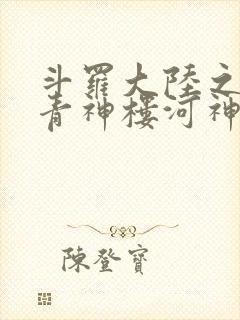 斗羅大陸之
青神樓河神
陳登寶